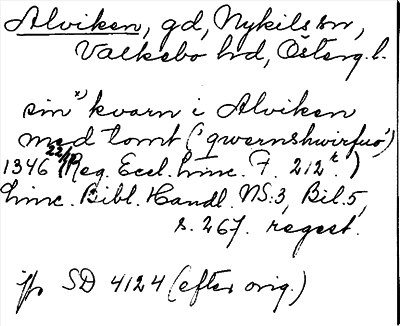 Alviken, gd, Nykils sn,
Valkebo hd, Österg. l.
sin x) kvarn i Alviken
med tomt ('qwernshwirfuo')
1346 22/1 (Reg. Eccl. Linc. F. 212 r.)
Linc. Bibl. Handl. NS:3, Bil. 5,
s. 267. regest.
jfr SD 4124 (efter orig.)